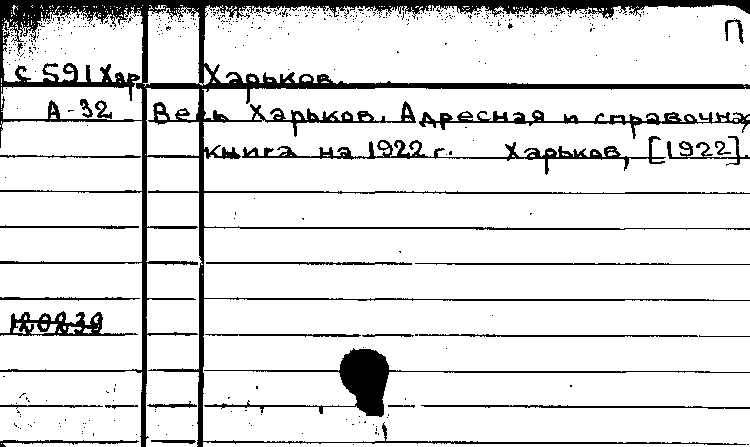 П
С 591 Хар Харьков.
А-32 Весь Харьков. Адресная и справочная
книга на 1922 г. Харьков, [1922].
120239